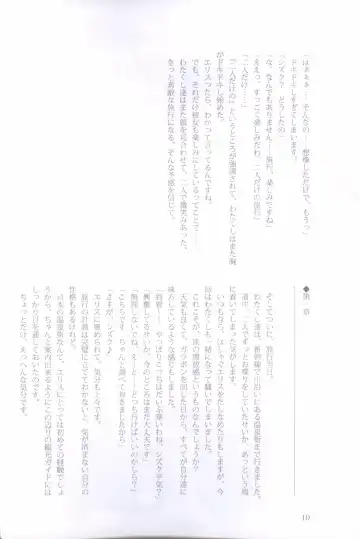 「はぁぁぁ……そんなの……想像しただけで、もうっ」
ドキドキしすぎてしまいます！
「シズク？　どうしたの」
「な、なんでもありません……旅行、楽しみですね」
「ええっ、すっごく楽しみだわ、二人だけの旅行」
「二人だけ……」
「二人だけの」というところが強調されて、わたくしはまた胸
がドキドキし始めた。
エリスったら、わかって言ってるんですね。
でも、それだけ彼女も楽しみにしているってことで……
わたくし達はまた顔を見合わせて、二人で微笑みあった。
きっと素敵な旅行になる、そんな予感を信じて。
◆第一章
そしてついに、旅行当日──
わたくし達は、新幹線で川沿いにある温泉街まで行きました。
道中、二人でずっとお喋りをしていたせいか、あっという間
に着いてしまった気がします。
いつもなら、はしゃぐエリスをたしなめたりもしますが、今
回はわたくしも、一緒になって騒いでしまいました。
これこそが、旅の開放感というものなんでしょうか。
天気もよく、ガラポンを回した日から、すべてが自分達に
味方しているような感じもしました。
「到着──　やっぱりこっちはだいぶ寒いわね、シズク平気？」
「興奮してるせいか、今のところはまだ大丈夫です」
「無理しないでね、えーと……どっち行けばいいのかしら？」
「こちらです、ちゃんと調べておきましたから」
「さすが、シズク♪」
エリスに褒められて、気分もよくなります。
旅行の計画は完璧に立てておかないと、気が済まない自分の
性格もあるけれど。
日本の温泉街なんて、エリスにとっては初めての経験でしょ
うから、ちゃんと案内出来るようにこの辺りの観光ガイドには
しっかり目を通しておいたのです。
ちょっとだけ、えっへんな気分です。
10